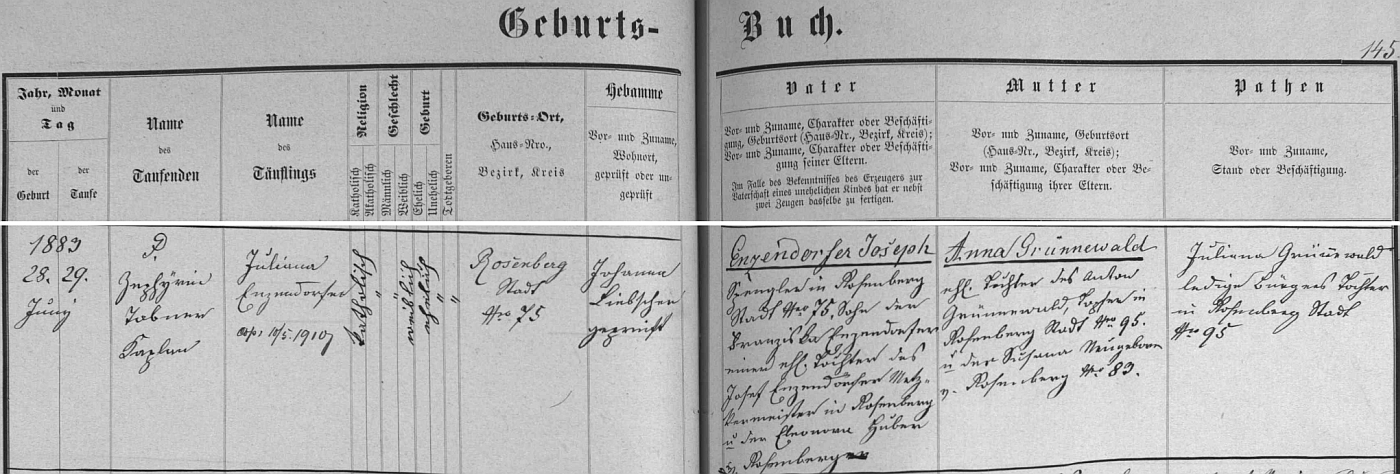 Geburts-Buch.
145
Jahr, Monat
und
Tag
der
Geburt
der
Taufe
Name
des
Taufenden
Name
des
Täuflings
Religion
Katholisch
Akatholisch
Geschlecht
Männlich
Weiblich
Geburt
Ehelich
Unehelich
Todtgeboren
Geburts-Ort,
Haus-Nro.,
Bezirk, Kreis
Hebamme
Vor- und Zuname,
Wohnort,
geprüft oder un-
geprüft
Vater
Vor- und Zuname, Charakter oder Beschäfti-
gung, Geburtsort (Haus-Nr., Bezirk, Kreis);
Vor- und Zuname, Charakter oder Beschäfti-
gung seiner Eltern.
Im Falle des Bekenntnisses des Erzeugers zur
Vaterschaft eines unehelichen Kindes hat er nebst
zwei Zeugen dasselbe zu fertigen.
Mutter
Vor- und Zuname, Geburtsort
(Haus-Nr., Bezirk, Kreis);
Vor- und Zuname, Charakter oder Be-
schäftigung ihrer Eltern.
Pathen
Vor- und Zuname,
Stand oder Beschäftigung.
1883
28. 29.
Juny
P.
Zephyrin
Tobner
Kaplan
Juliana
Enzendorfer
katholisch
"
weiblich
ehelich
"
"
Rosenberg
Stadt
Nro 75
Johanna
Liebscher
geprüft
Enzendorfer Joseph
Spengler in Rosenberg
Stadt Nro 75, Sohn der
Franziska Enzendorfer
einer ehl. Tochter des
Josef Enzendorfer Metz-
germeister in Rosenberg
u der Eleonora Huber
v. Rosenberg
Anna Grünnewald
ehl. Tochter des Anton
Grünnewald, in
Rosenberg Stadt Nro 95.
u der Susana Neugeborn
v. Rosenberg Nro 83.
Juliana Grünnewald
ledige Bürgers Tochter
in Rosenberg Stadt
Nro 95